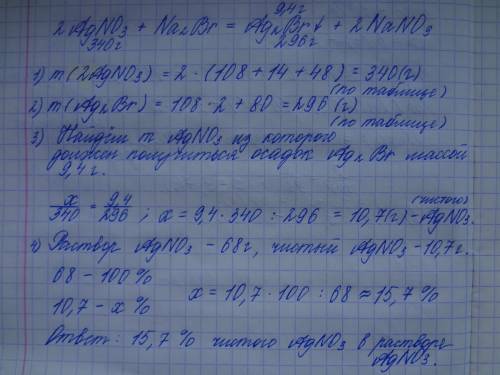 9,4г
2AgNO₃ + Na₂Br = Ag₂Br↓ + 2NaNO₃
340г 296г
1) m(2AgNO₃) = 2·(108+14+48) = 340(г)
(по таблице)
2) m(Ag₂Br) = 108·2+80 = 296 (г)
(по таблице)
3) Найдём m AgNO₃ из которого
должен получиться осадок Ag₂Br массой
9,4г.
(чистого)
x/340 = 9,4/296 ; x = 9,4·340 : 296 = 10,7(г) - AgNO₃.
4) Раствор AgNO₃ - 68г, чистый AgNO₃ - 10,7г.
68 - 100%
10,7 - x % x = 10,7·100 : 68 ≈ 15,7%
Ответ: 15,7% чистого AgNO₃ в растворе
AgNO₃.